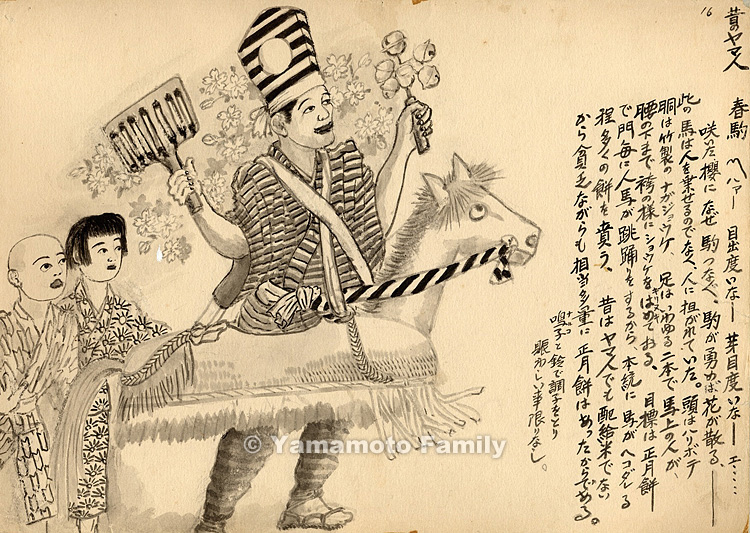 16
昔のヤマ人
春駒 ハァー 目出度いなー 芽目度いなー エ……
咲いた櫻に なぜ駒つなぐ、駒が勇めば花が散る、
此の馬は人を乗せるのでなく、人に担がれていた。頭はハリボテ
胴は竹製のナガジョウケ、足はいわゆる二本で馬上の人が、
腰の下まで袴の様にショウケをはめておる、目標は正月餅
で門毎に人馬が跳踊りをするから、本統に馬がヘコダレる
程多くの餅を貰う、昔はヤマ人でも配給米でない
から貧乏ながらも相当多量に正月餅はあったからである。
鳴子と鈴で調子をとり
賑わしい事限りなし。
© Yamamoto Family